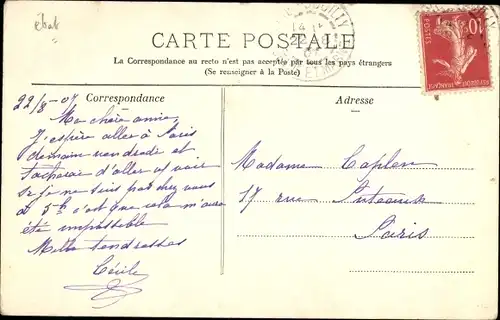 état
CARTE POSTALE
La Correspondance au recto n'est pas acceptée par tous les pays étrangers
(Se renseigner à la Poste)
Correspondance
Adresse
22/8-07
Ma chère amie,
J'espère aller à Paris
demain vendredi et
tacherai d'aller vs voir
Si je ne suis pas chez vous
à 5h c'est que cela m'aura
été impossible
Mille tendresses
Cécile
Madame Caplen
17 rue Puteaux
Paris
10
POSTES